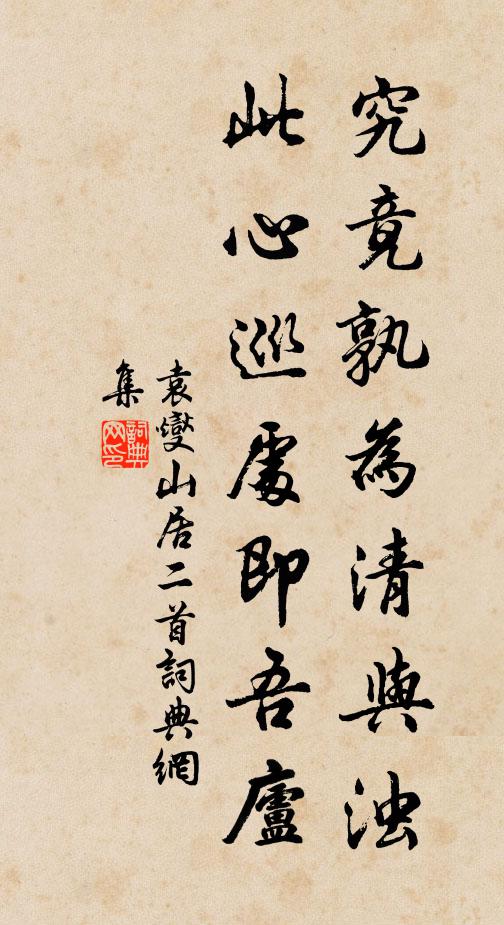 究竟孰為清與浊
此心巡處即吾廬
袁燮山居二首詞典網
集
詞典网印